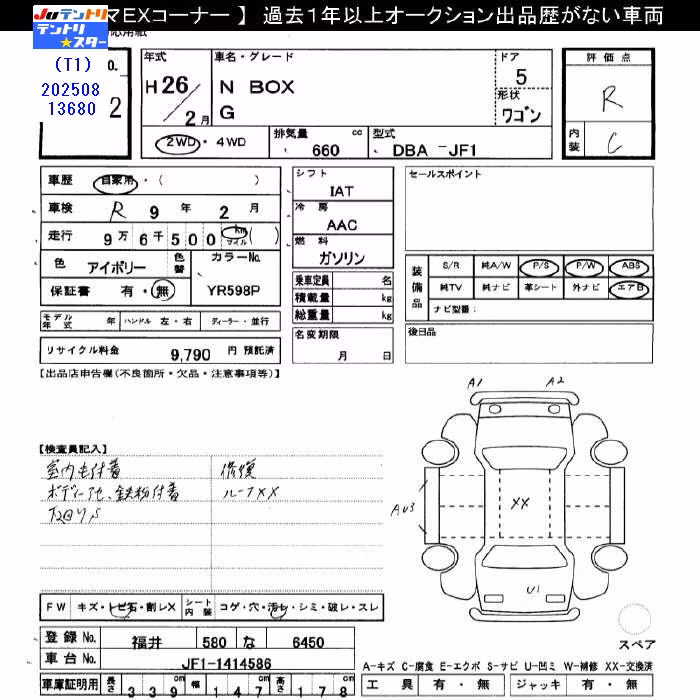 マEXコーナー 】 過去1年以上オークション出品歴がない車両
Juテントリ
テントリ★スター
(T1)
202508
13680
O.
2
年式
H26/2月
車名・グレード
N BOX
G
ドア
5
形状
ワゴン
評価点
R
内装
C
2WD・4WD
排気量 cc
660
型式
DBA -JF1
車歴 自家用・( )
車検 R 9 年 2 月
走行 9万 6千 5 0 0 km マイル ( )
色 アイボリー 色替
カラーNo.
YR598P
保証書 有・無
モデル年式 年 ハンドル 左・右 ディーラー・並行
リサイクル料金 9,790 円 預託済
シフト
IAT
冷房
AAC
燃料
ガソリン
乗車定員 名
積載量 kg
総重量 kg
名変期限
月 日
セールスポイント
装備品
S/R 純A/W P/S P/W ABS
純TV 純ナビ 革シート 外ナビ エアB
ナビ型番:
後日品
【出品店申告欄(不良箇所・欠品・注意事項等)】
【検査員記入】
室内毛付着
ボディーアセ、鉄粉付着
下回りS
修復
ルーフXX
A1
A2
AU3
XX
U1
FW キズ・トビ石・割レX シート内装 コゲ・穴・汚レ・シミ・破レ・スレ
登録No. 福井 580 な 6450
車台No. JF1-1414586
車庫証明用 長さ 339cm 幅 147cm 高さ 178cm
スペア
A-キズ C-腐食 E-エクボ S-サビ U-凹ミ W-補修 XX-交換済
工具 有・無 ジャッキ 有・無